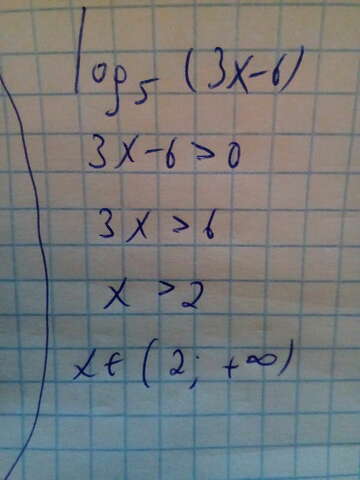 log₅ (3x-6)
3x-6>0
3x>6
x>2
x∈(2; +∞)